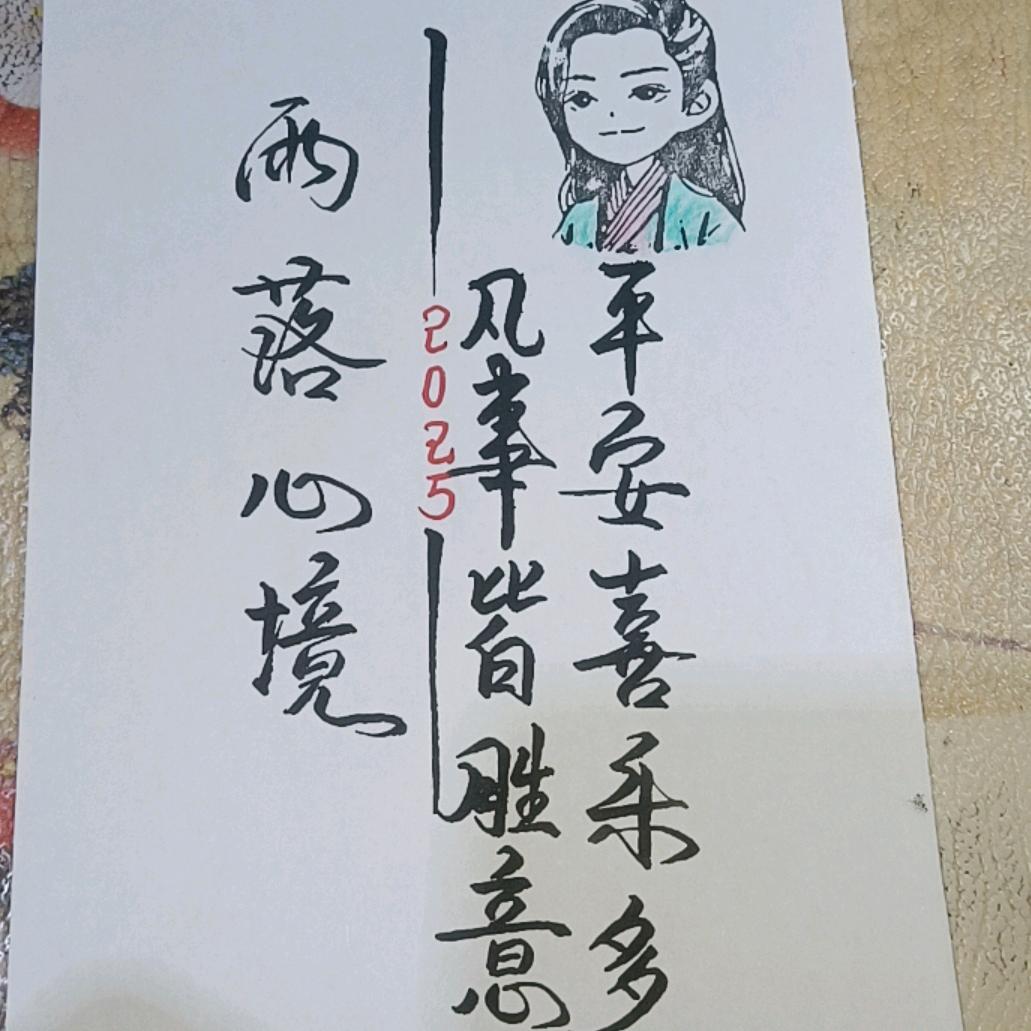 平安喜乐多
凡事皆胜意
2025
雨落心境